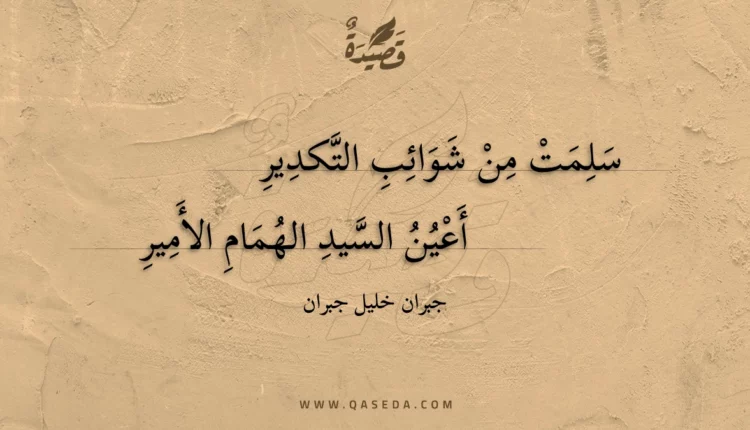 قَصِيدَةٌ
سَلِمَتْ مِنْ شَوَائِبِ التَّكدِيرِ
أَعْيُنُ السَّيدِ الهُمَامِ الأَمِيرِ
جبران خليل جبران
WWW.QASEDA.COM